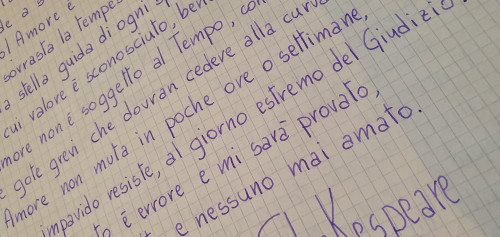 de a s
o! Amore è
sovrasta la tempes
a stella guida di ogni
cui valore è sconosciuto, ben
more non è soggetto al Tempo, con
e gote grevi che dovran cedere alla curva
Amore non muta in poche ore o settimane,
impavido resiste, al giorno estremo del Giudizio
to è errore e mi sarà provato,
e nessuno mai amato.
Kespeare